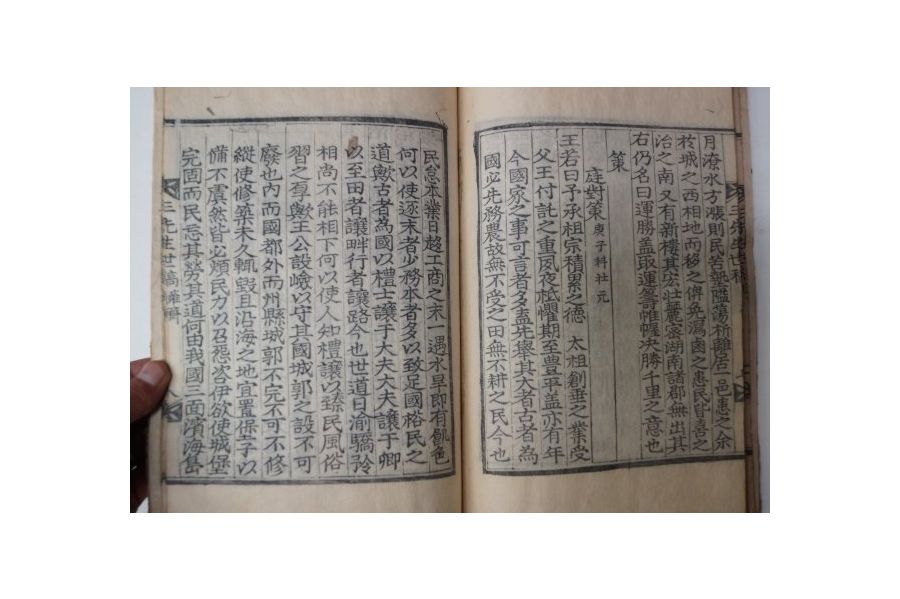 月潦水方漲則民苦墊隘蕩析離居一邑患之余
於城之西相地而移之俾免瀉鹵之患民皆喜之
治之南又有新樓其宏壯麗密湖南諸郡無出其
右仍名曰運勝盖取運籌帷幄决勝千里之意也
策
庭對策 庚子科壯元
王若曰予承祖宗積累之德 太祖創垂之業受
父王付託之重夙夜祗懼期至豊平盖亦有年
今國家之事可言者多盍先舉其大者古者為
國必先務農故無不受之田無不耕之民今也
民怠本業日趍工商之末一遇水旱即有飢色
何以使逐末者少務本者多以致足國裕民之
道歟古者為國以禮士讓于大夫大夫讓于卿
以至田者讓畔行者讓路今也世道日渝驕矜
相尚不能相下何以使人知禮讓以臻民風俗
習之㪟歟王公設嶮以守其國城郭之設不可
廢也内而國都外而州縣城郭不完不可不修
縱使修築未久輒毁且沿海之地宜置保子以
備不虞然皆必頻民力以召怨咨伊欲使城堡
完固而民忘其勞其道何由我國三面濱海島
三先生世稿
八